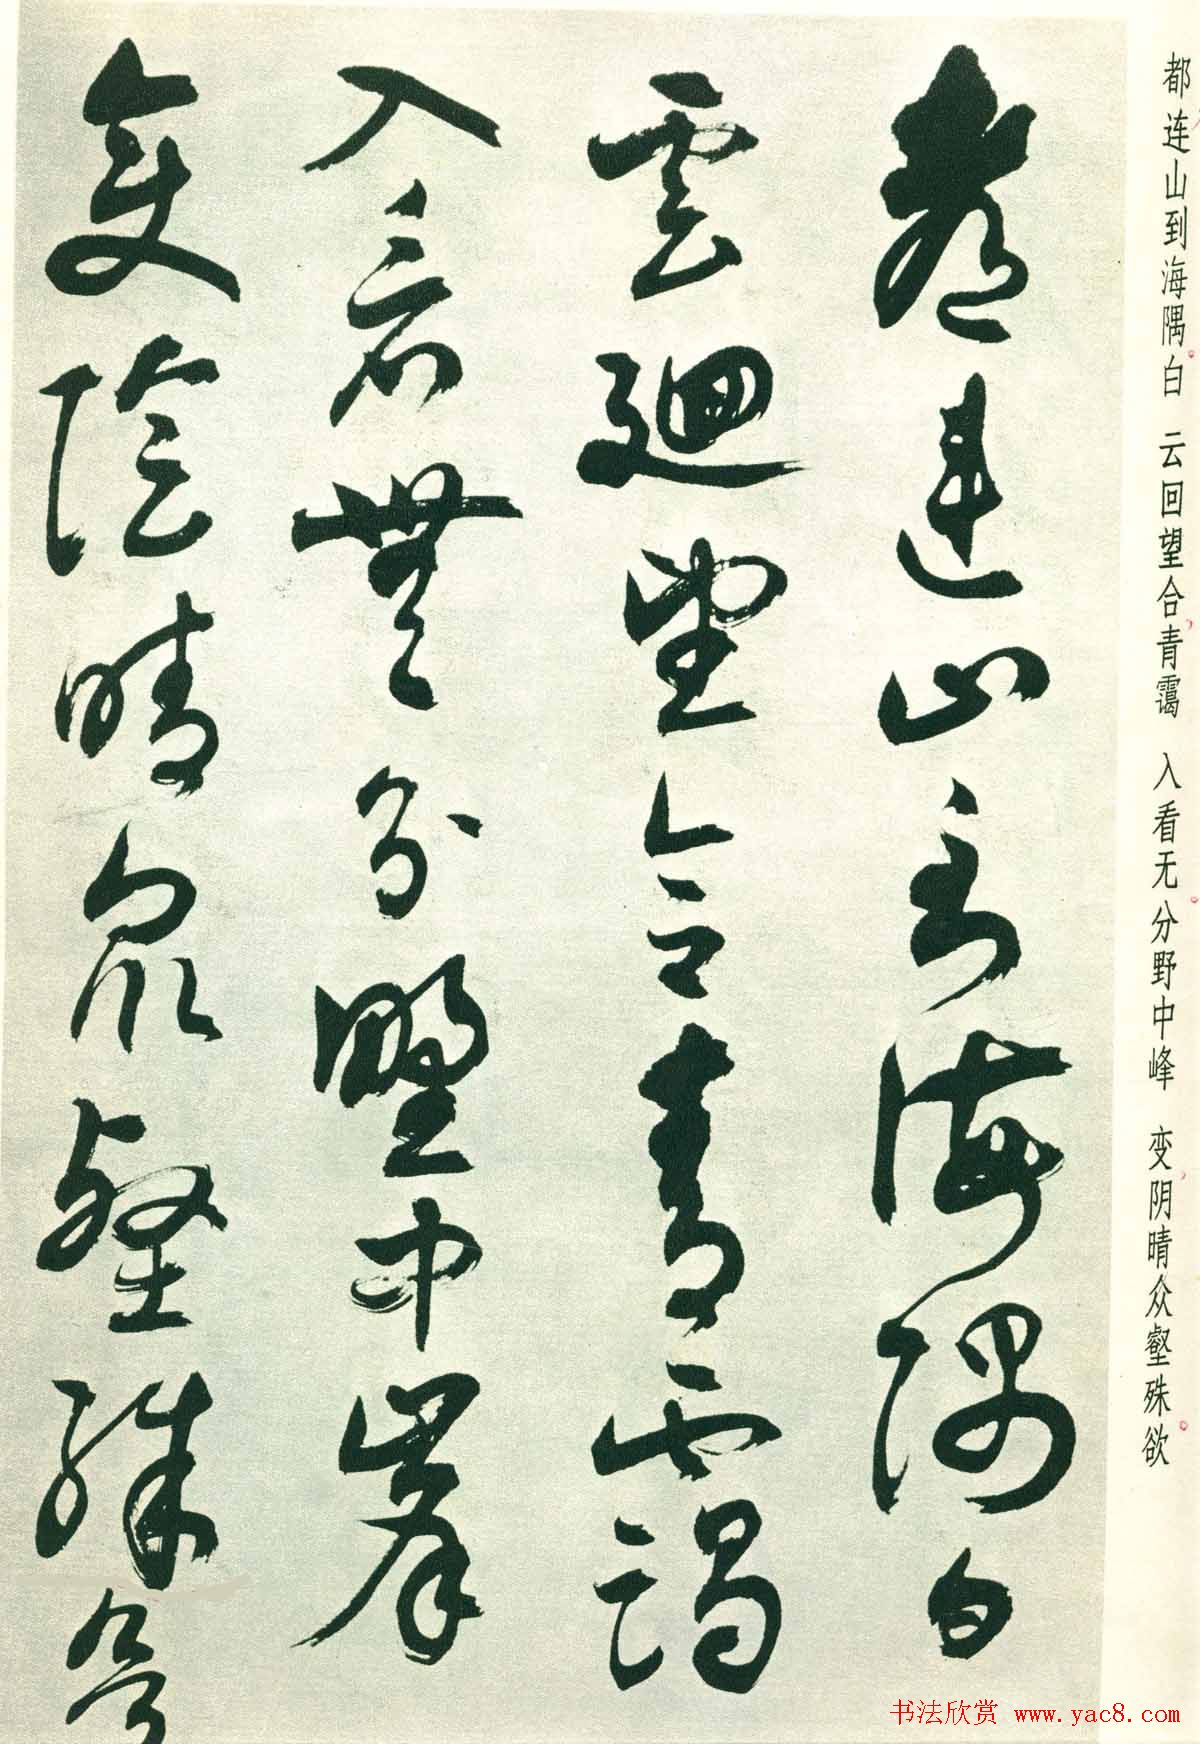 都连山到海隅白 云回望合青霭 入看无分野中峰 变阴晴众壑殊欲
都連山到海隅白
雲迴望合青靄
入看無分野中峯
變陰晴眾壑殊欲
书法欣赏 www.yac8.com